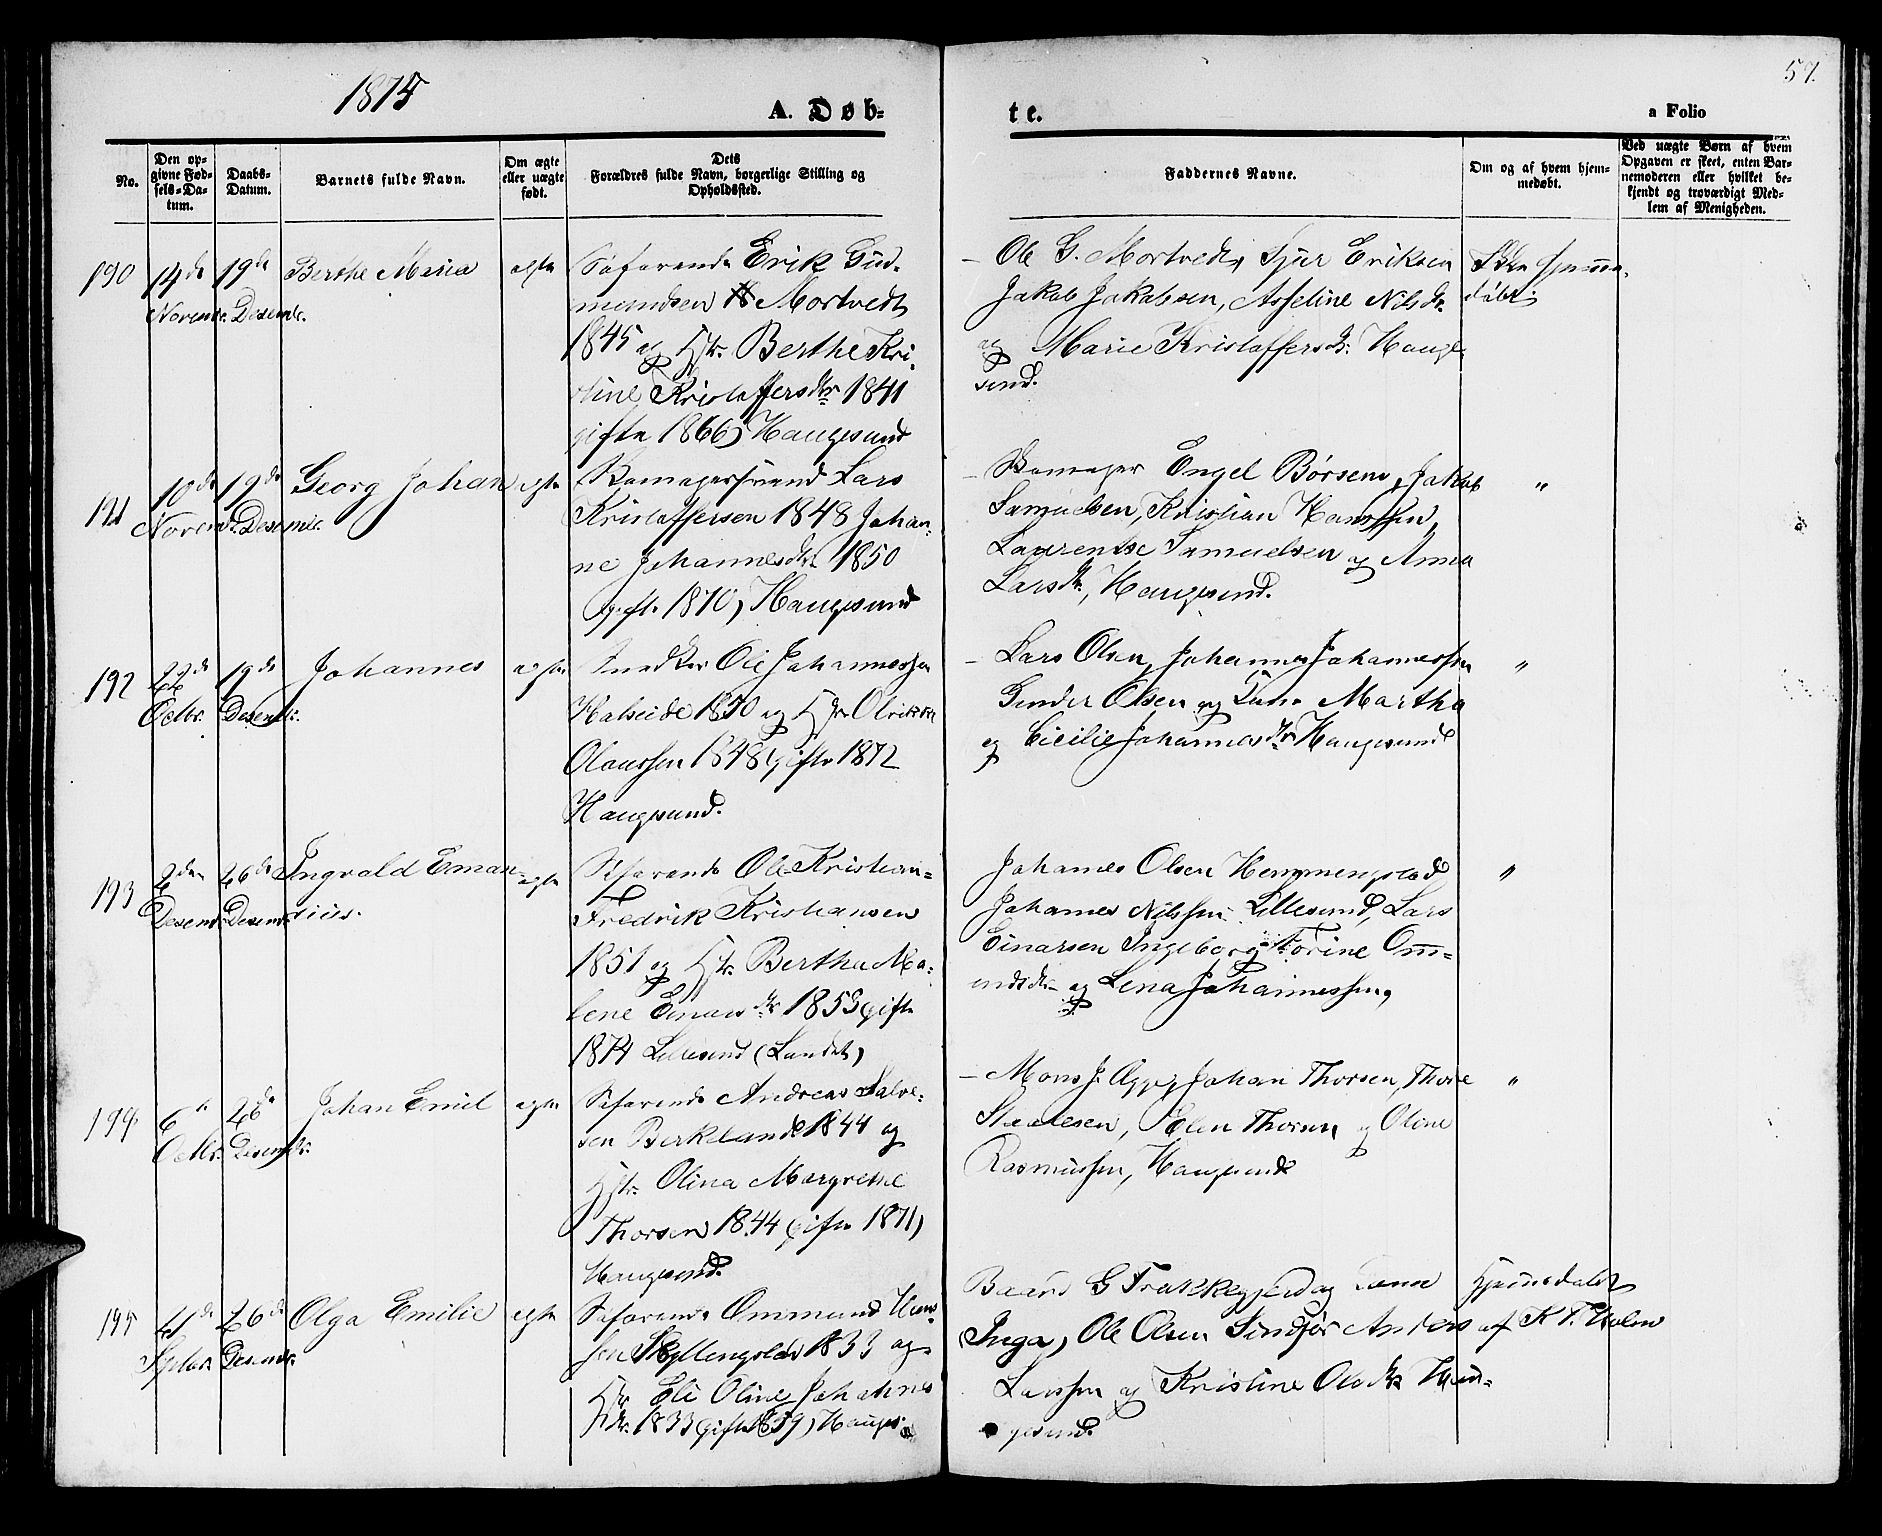 1875
A. Døb-
te.
a Folio
57.
No.
Den op-
givne Fød-
sels-Da-
tum.
Daabs-
Datum.
Barnets fulde Navn.
Om ægte
eller uægte
født.
Dets
Forældres fulde Navn, borgerlige Stilling og
Opholdssted.
Faddernes Navne.
Om og af hvem hjem-
medøbt.
Ved uægte Børn af hvem
Opgaven er skeet, enten Bar-
nemoderen eller hvilket be-
kjendt og troværdigt Med-
lem af Menigheden.
190
14de
Novembr.
19de
Desembr.
Berthe Maria
ægte
Søfarende Erik Gud-
mundsen Mortvedt
1845 og Hstr. Berthe Kri
stine Kristoffersdtr 1841
gifte 1866, Haugesund
– Ole G. Mortvedt, Sjur Eriksen
Jakob Jakobsen, Asseline Nilsdr.
og Marie Kristoffersdr. Hauge
sund.
Ikke hjemme-
døbt.
191
10de
Novembr.
19de
Desembr.
Georg Johan
ægte
Lars
Kristoffersen 1848 Johan-
ne Johannesdtr 1850
gifte 1870, Haugesund
– Engel Børsen, Jakob
Samuelsen, Kristian Hanssen,
Laurentse Samuelsen og Anna
Larsdr., Haugesund.
"
192
22de
Octbr.
19de
Desembr.
Johannes
ægte
Snedker Ole Johannessen
Halseide 1850 og Hstr. Olrikke
Olaussen 1848 gifte 1872
Haugesund.
– Lars Olsen, Johannes Johannessen
Gunder Olsen og Kone Martha
og Cicilie Johannesdr Haugesund
"
193
2den
Desembr.
26de
Desembr.
Ingvald Eman-
sius.
ægte
Søfarende Ole Kristian-
Fredrik Kristiansen
1851 og Hstr. Berthe Ma-
lene Einarsdtr 1853 gifte
1874 Lillesund (Landet)
Johannes Olsen Hemmingstad
Johannes Nilssen Lillesund, Lars
Einarsen Ingeborg Torine Om-
undsdtr og Lena Johannessen,
"
194
6te
Octbr.
26de
Desembr.
Johan Emil
ægte
Søfarende Andreas Salve-
sen Birkeland 1844 og
Hstr. Olina Margrethe
Thorsen 1844 (gifte 1871)
Haugesund.
– Mons J. Johan Thorsen, Thore
Elen Thorsen og Oline
Rasmussen, Haugesund
"
195
21de
Septbr.
26de
Desembr.
Olga Emilie
ægte
Søfarende Ommund Han-
sen 1833 og
Hstr Eli Oline Johannes
dtr. 1833 gifte 1859, Hauges
Baard G Frakkegjerd og Kone
Inga, Ole Olsen Sindfjor Anders
Larssen og Kristine Olsdtr Hau-
gesund.
Hjemmedøbt
af K T. Holm